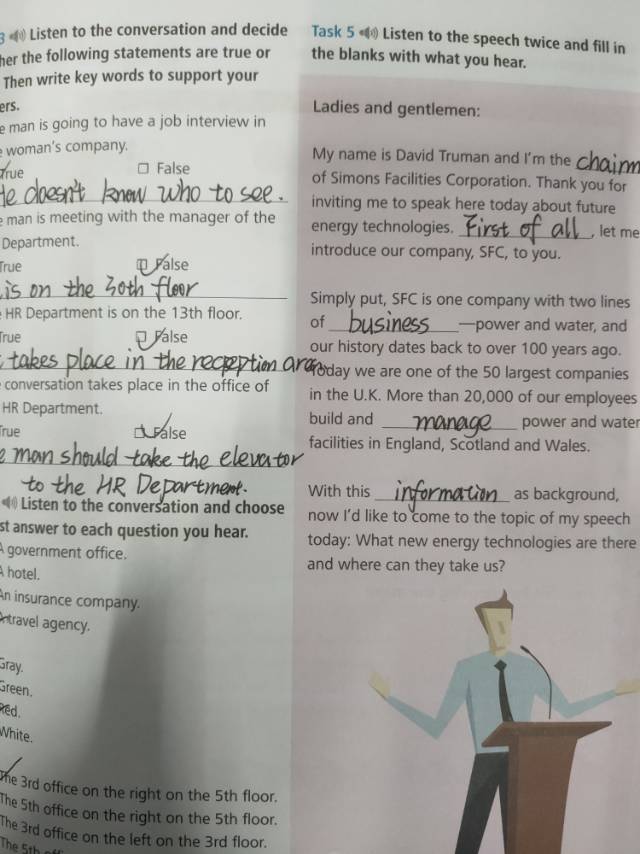 3 Listen to the conversation and decide
her the following statements are true or
Then write key words to support your
ers.
e man is going to have a job interview in
e woman's company.
True □ False
He doesn't know who to see.
e man is meeting with the manager of the
Department.
True □ False
is on the 30th floor
HR Department is on the 13th floor.
True □ False
takes place in the recreption area
conversation takes place in the office of
HR Department.
True □ False
e man should take the elevator
to the HR Department.
Listen to the conversation and choose
st answer to each question you hear.
A government office.
A hotel.
An insurance company.
A travel agency.
Gray.
Green.
Red.
White.
The 3rd office on the right on the 5th floor.
The 5th office on the right on the 5th floor.
The 3rd office on the left on the 3rd floor.
The 5th
Task 5 Listen to the speech twice and fill in
the blanks with what you hear.
Ladies and gentlemen:
My name is David Truman and I'm the chairm
of Simons Facilities Corporation. Thank you for
inviting me to speak here today about future
energy technologies. First of all, let me
introduce our company, SFC, to you.
Simply put, SFC is one company with two lines
of business—power and water, and
our history dates back to over 100 years ago.
Today we are one of the 50 largest companies
in the U.K. More than 20,000 of our employees
build and manage power and water
facilities in England, Scotland and Wales.
With this information as background,
now I'd like to come to the topic of my speech
today: What new energy technologies are there
and where can they take us?